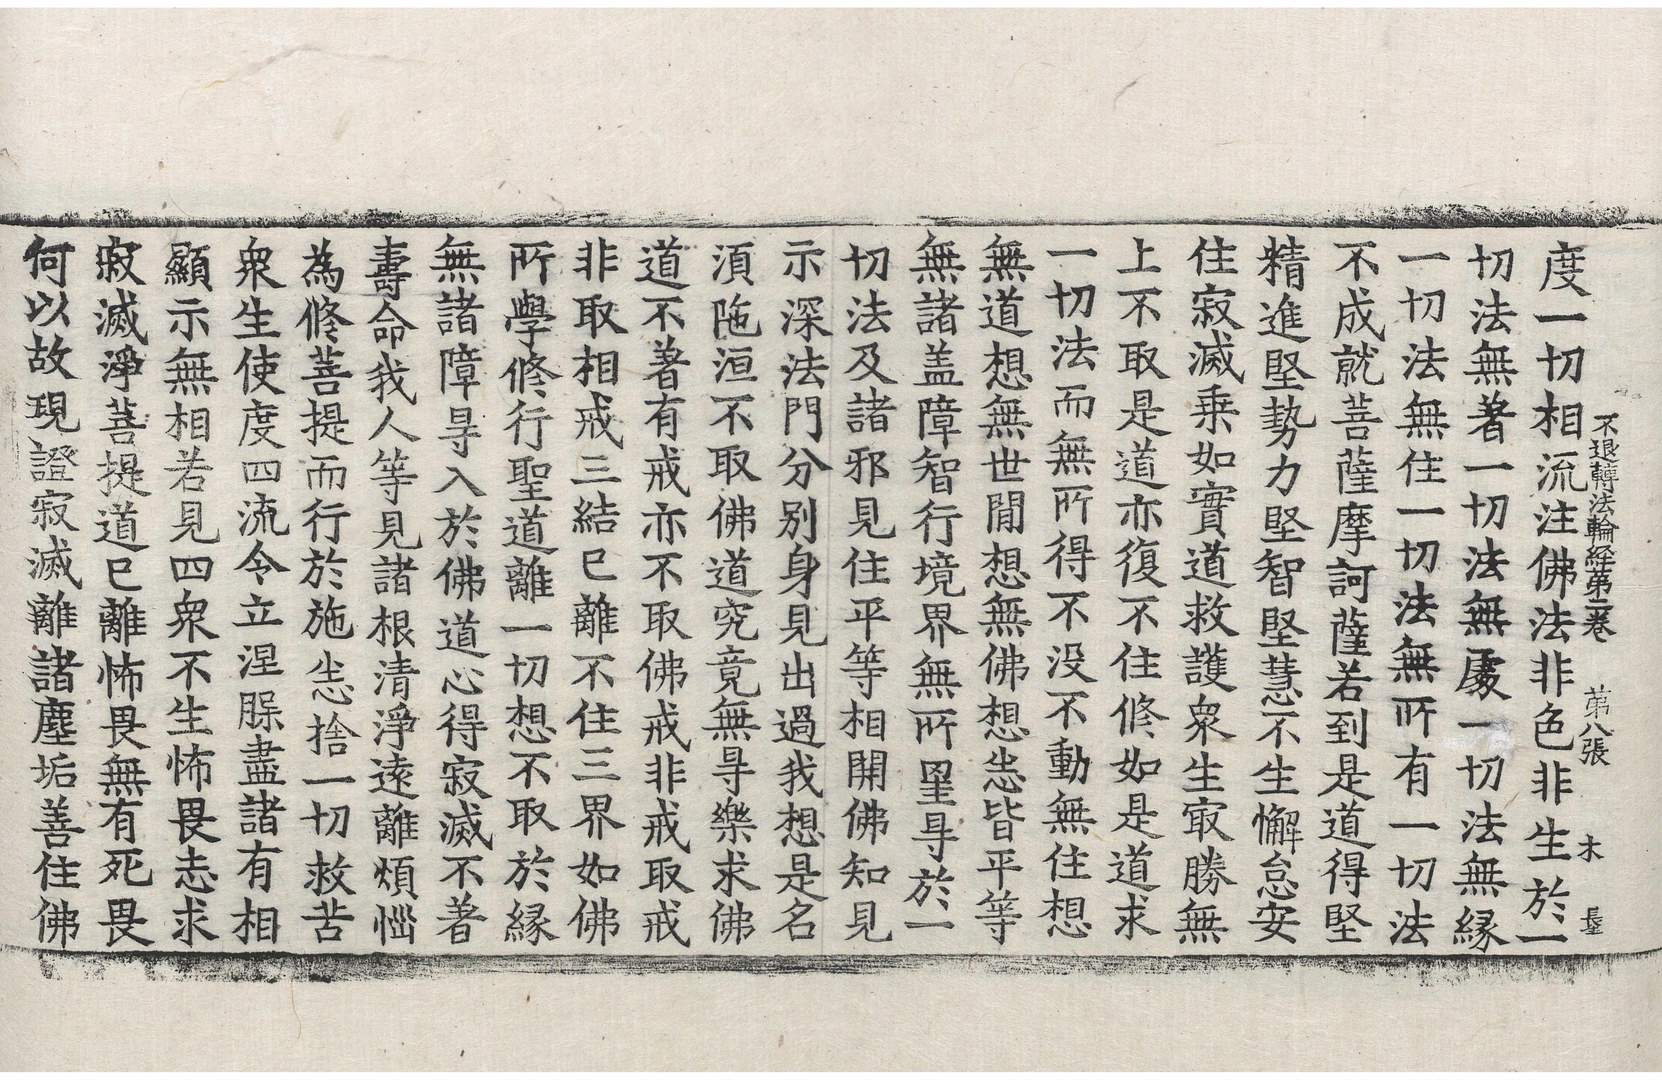 不退轉法輪経第二卷 第八張 木 㝵
度一切相流注佛法非色非生於一
切法無著一切法無處一切法無縁
一切法無住一切法無所有一切法
不成就菩薩摩訶薩若到是道得堅
精進堅勢力堅智堅慧不生懈怠安
住寂滅乗如實道救護衆生㝡勝無
上不取是道亦復不住修如是道求
一切法而無所得不没不動無住想
無道想無世間想無佛想悉皆平等
無諸盖障智行境界無所罣㝵於一
切法及諸邪見住平等相開佛知見
示深法門分別身見出過我想是名
湏陁洹不取佛道究竟無㝵樂求佛
道不著有戒亦不取佛戒非戒取戒
非取相戒三結已離不住三界如佛
所學修行聖道離一切想不取於縁
無諸障㝵入於佛道心得寂滅不著
壽命我人等見諸根清淨遠離煩惱
為修菩提而行於施悉捨一切救苦
衆生使度四流令立涅槃盡諸有相
顯示無相若見四衆不生怖畏志求
寂滅淨菩提道已離怖畏無有死畏
何以故現證寂滅離諸塵垢善住佛